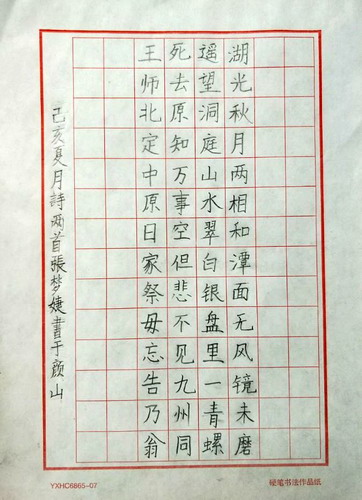 湖光秋月两相和潭面无风镜未磨
遥望洞庭山水翠白银盘里一青螺
死去原知万事空但悲不见九州同
王师北定中原日家祭毋忘告乃翁
己亥夏月詩两首張梦婕書于颜山
YXHC6865-07
硬笔书法作品纸